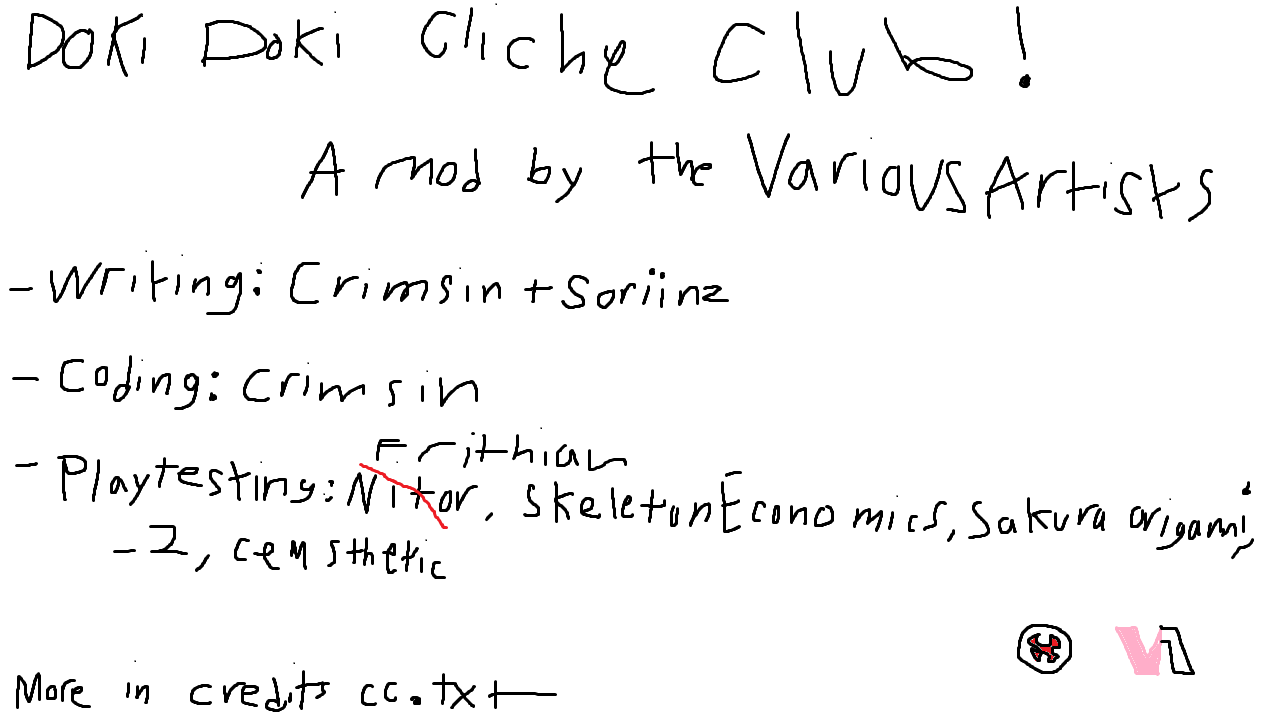 Doki Doki Cliche Club!
A mod by the Various Artists
- Writing: Crimsin + Soriinz
- Coding: Crimsin
Frithian
- Playtesting: Nitor, SkeletonEconomics, Sakura origami,
- Z, cemsthetic
More in credits cc.txt